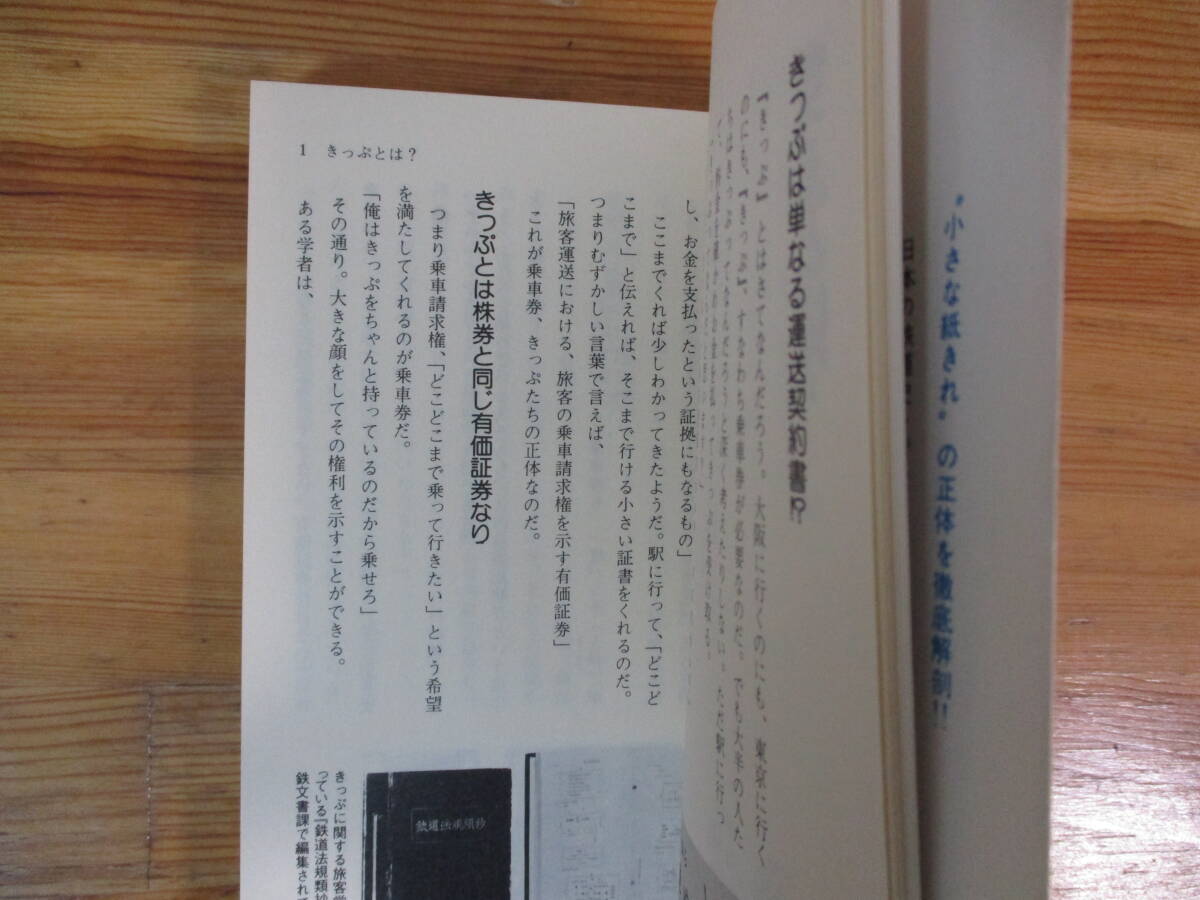 〝小さな紙きれ〟の正体を徹底解剖!!
きっぷは単なる運送契約書!?
『きっぷ』とはさてなんだろう。大阪に行くのにも、東京に行く
のにも、『きっぷ』、すなわち乗車券が必要なのだ。でも大半の人た
ちはきっぷってなんだろうと深く考えたりしない。ただ駅に行っ
1 きっぷとは？
し、お金を支払ったという証拠にもなるもの」
ここまでくれば少しわかってきたようだ。駅に行って、「どこど
こまで」と伝えれば、そこまで行ける小さい証書をくれるのだ。
つまりむずかしい言葉で言えば、
「旅客運送における、旅客の乗車請求権を示す有価証券」
これが乗車券、きっぷたちの正体なのだ。
きっぷとは株券と同じ有価証券なり
つまり乗車請求権、「どこどこまで乗って行きたい」という希望
を満たしてくれるのが乗車券だ。
「俺はきっぷをちゃんと持っているのだから乗せろ」
その通り。大きな顔をしてその権利を示すことができる。
ある学者は、
鉄道法規類抄
きっぷに関する旅客営
っている『鉄道法規類抄
鉄文書課で編集されて